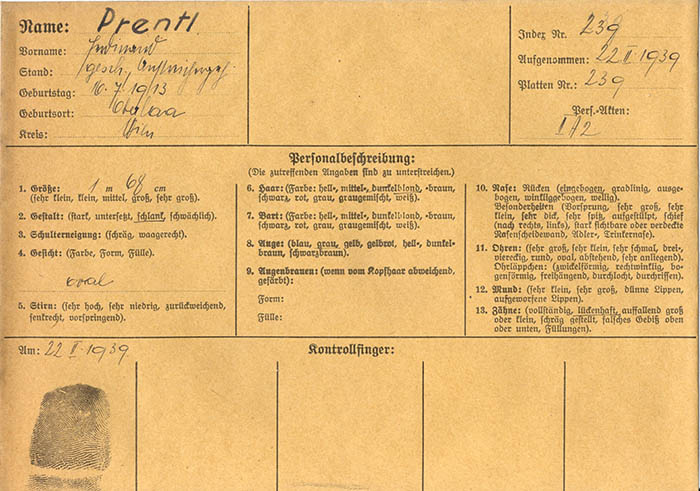 Name: Prentl
Vorname: Ferdinand
Stand: gesch.,
Geburtstag: 16.7.1913
Geburtsort:
Kreis: Wien
Index Nr. 239
Aufgenommen: 22 II 1939
Platten Nr.: 239
Pers.-Akten:
II A2
Personalbeschreibung:
(Die zutreffenden Angaben sind zu unterstreichen.)
1. Größe: 1 m 68 cm
(sehr klein, klein, mittel, groß, sehr groß).
2. Gestalt: (stark, untersetzt, schlank, schwächlich).
3. Schulterneigung: (schräg, waagerecht).
4. Gesicht: (Farbe, Form, Fülle).
oval
5. Stirn: (sehr hoch, sehr niedrig, zurückweichend,
senkrecht, vorspringend).
6. Haar: (Farbe: hell-, mittel-, dunkelblond, -braun,
schwarz, rot, grau, graugemischt, weiß).
7. Bart: (Farbe: hell-, mittel-, dunkelblond, -braun,
schwarz, rot, grau, graugemischt, weiß).
8. Auge: (blau, grau, gelb, gelbrot, hell-, dunkel-
braun, schwarzbraun).
9. Augenbrauen: (wenn vom Kopfhaar abweichend,
gefärbt):
Form:
Fülle:
10. Nase: Rücken (eingebogen, gradlinig, ausge-
bogen, winkliggebogen, wellig).
Besonderheiten (Vorsprung, sehr groß, sehr
klein, sehr dick, sehr spitz, aufgestülpt, schief
(nach rechts, links), stark sichtbare oder verdeckte
Nasenscheidewand, Adler-, Trinkernase).
11. Ohren: (sehr groß, sehr klein, sehr schmal, drei-,
viereckig, rund, oval, abstehend, sehr anliegend).
Ohrläppchen: (zwickelförmig, rechtwinklig, bo-
genförmig, freihängend, durchlocht, durchrissen).
12. Mund: (sehr klein, sehr groß, dünne Lippen,
aufgeworfene Lippen).
13. Zähne: (vollständig, lückenhaft, auffallend groß
oder klein, schräg gestellt, falsches Gebiß oben
oder unten, Füllungen).
Am: 22 II 1939
Kontrollfinger: